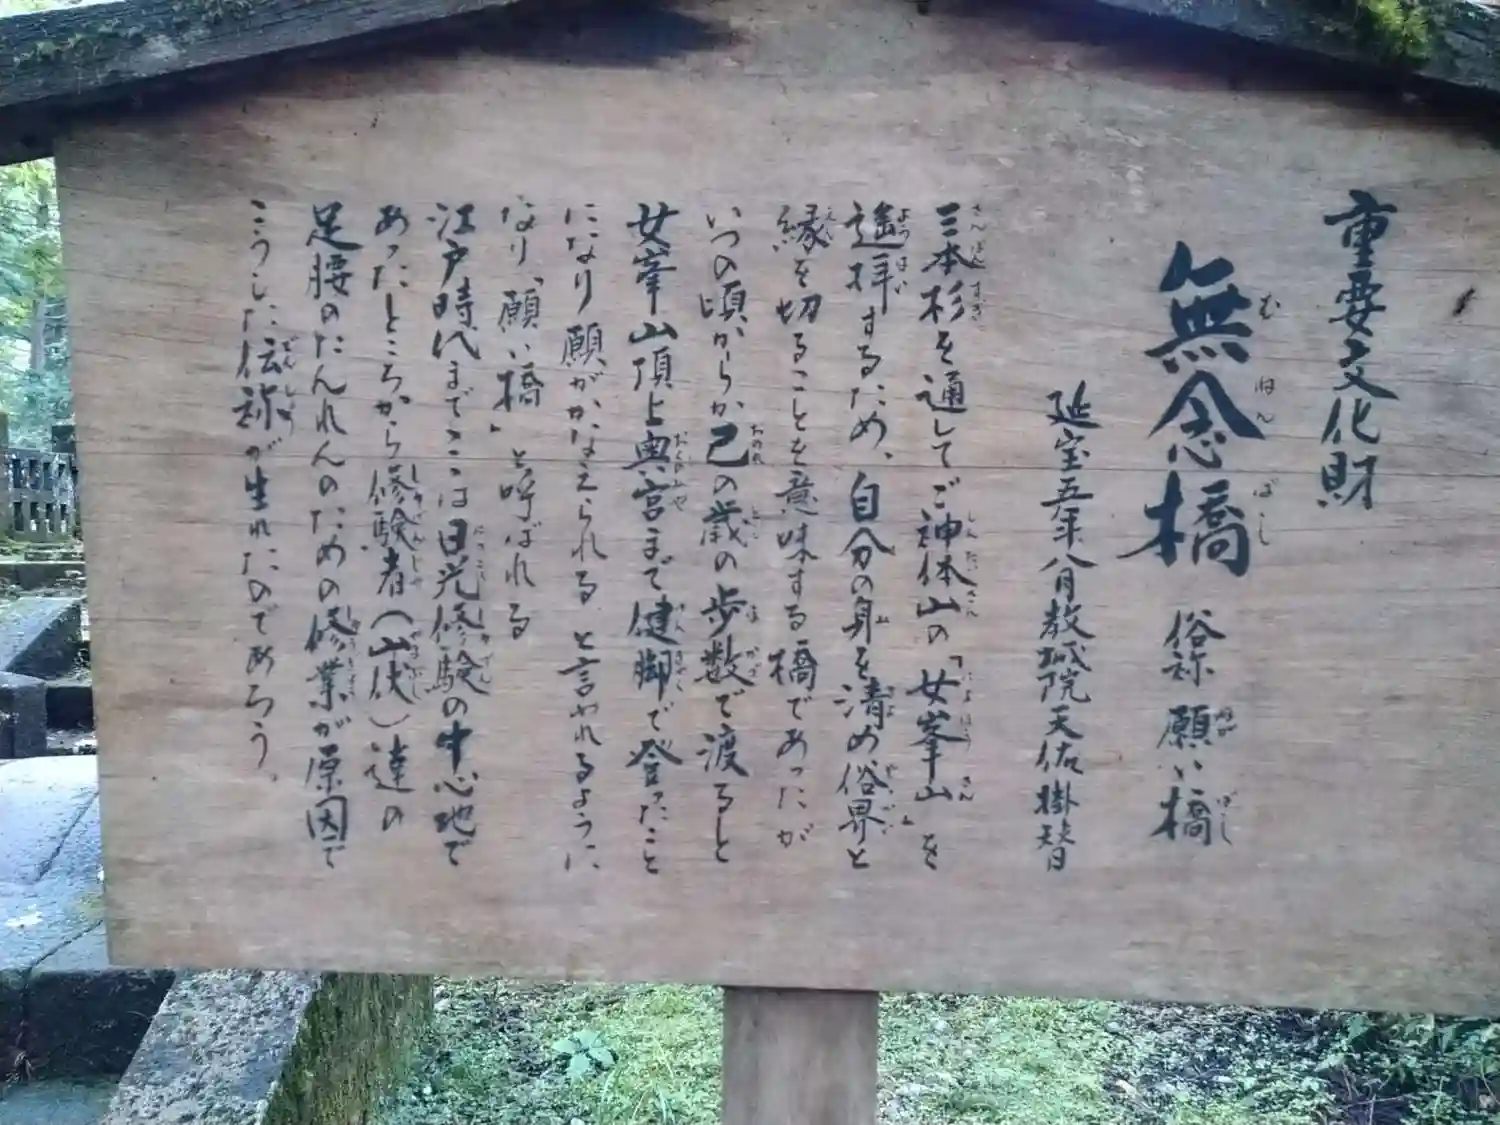 重要文化財
無念橋 俗称 願い橋
延宝五年八月教城院天佑掛替
三本杉を通してご神体山の「女峯山」を
遥拝するため、自分の身を清め俗界と
縁を切ることを意味する橋であったが
いつの頃からか己の歳の歩数で渡ると
女峯山頂上奥宮まで健脚で登ったこと
になり願がかなえられる と言われるように
なり「願い橋」と呼ばれる
江戸時代までここは日光修験の中心地で
あったところから修験者(山伏)達の
足腰のたんれんのための修業が原因で
こうした伝称が生れたのであろう。